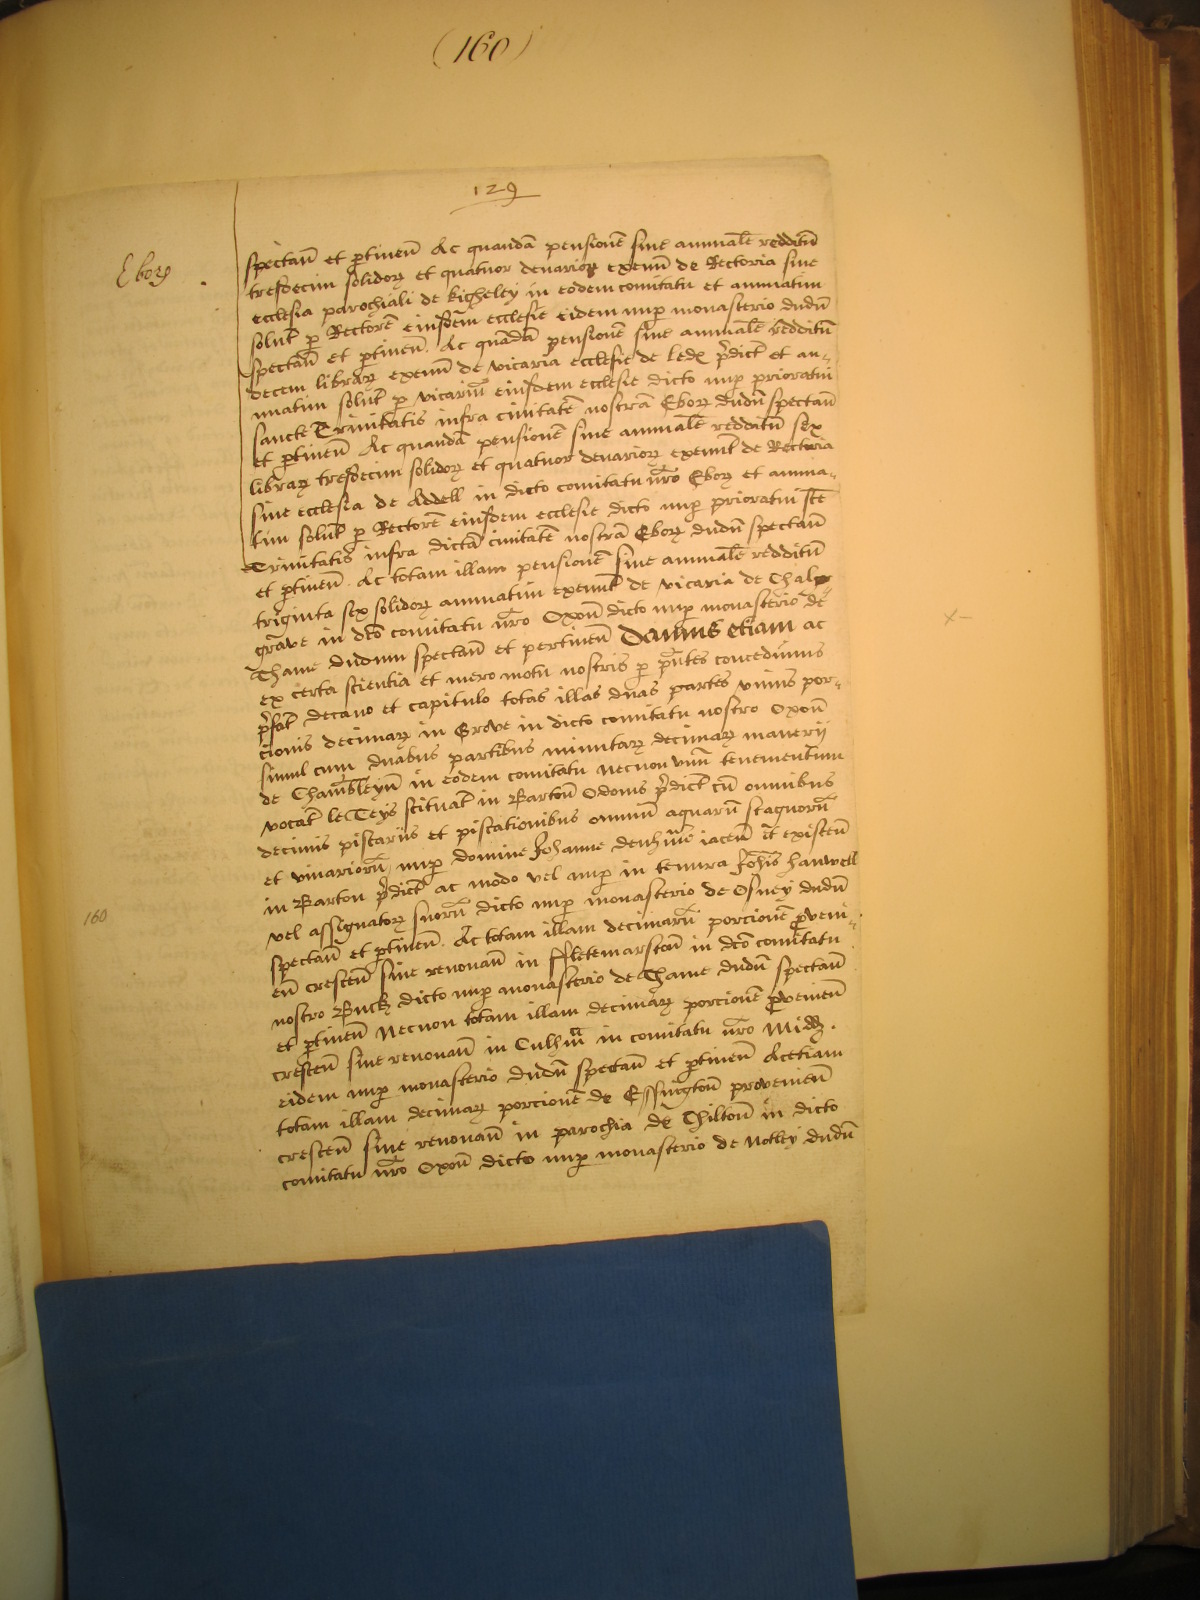 (160)
129
Ebor̄
spectan̄ et ꝑtinen̄ Ac quandā pensionē siue annualē redditū
tresdecim solidoꝝ et quatuor denarioꝝ exeun̄ de Rectoria siue
ecclesia parochiali de Kigheley in eodem comitatu et annuatim
solut̄ ꝑ Rectorē eiusdem ecclesie eidem nuꝑ monasterio dudū
spectan̄ et ꝑtinen̄. Ac quandā pensionē siue annualē redditū
decem libraꝝ exeun̄ de vicaria ecclesie de Ledꝭ p̄dict̄ et an-
nuatim solut̄ ꝑ vicariū eiusdem ecclesie dicto nuꝑ prioratui
sancte Trinitatis infra ciuitatē nostrā Eboꝝ dudū spectan̄
et ꝑtinen̄ Ac quandā pensionē siue annualē redditū sex
libraꝝ tresdecim solidoꝝ et quatuor denarioꝝ exeunt̄ de Rectoria
siue ecclesia de Addell in dicto comitatu nr̄o Eboꝝ et annua-
tim solut̄ ꝑ Rectorē eiusdem ecclesie dicto nuꝑ prioratui sc̄te
Trinitatis infra dictā ciuitatē nostrā Eboꝝ dudū spectan̄
et ꝑtinen̄. Ac totam illam pensionē siue annualē redditū
triginta sex solidoꝝ annuatim exeunt̄ de vicaria de Chal-
graue in dc̄o comitatu nr̄o Oxon̄ dicto nuꝑ monasterio de
Thame dudum spectan̄ et pertinen̄ Damus etiam ac
ex certa scientia et mero motu nostris ꝑ p̄ntes concedimus
p̄fat̄ decano et capitulo totas illas duas partes vnius por-
cionis decimaꝝ in Grove in dicto comitatu nostro Oxon̄
simul cum duabus partibus minutaꝝ decimaꝝ manerii
de Chambleyn̄ in eodem comitatu necnon vnū tenementum
vocat̄ le Teys scituat̄ in Barton̄ Odonis p̄dict̄ cū omnibus
decimis piscariis et piscationibus omniū aquarū stagnorū
et viuariorū nuꝑ domine Johanne Denhm̄e iacen̄ et existen̄
in Barton p̄dict̄ ac modo vel nuꝑ in tenura Joh̄is Hanwell
vel assignatoꝝ suorū dicto nuꝑ monasterio de Osney dudū
spectan̄ et ꝑtinen̄. Ac totam illam decimarū porcionē ꝓueni-
en̄ crescen̄ siue renouan̄ in Fletemarston̄ in dc̄o comitatu
nostro Buck dicto nuꝑ monasterio de Thame dudū spectan̄
et ꝑtinen̄ Necnon totam illam decimaꝝ porcionē ꝓuenien̄
crescen̄ siue renouan̄ in Culhm̄ in comitatu nr̄o Midd.
eidem nuꝑ monasterio dudū spectan̄ et ꝑtinen̄ Acetiam
totam illam decimaꝝ porcionē de Essington̄ prouenien̄
crescen̄ siue renouan̄ in parochia de Chilton̄ in dicto
comitatu nr̄o Oxon̄ dicto nuꝑ monasterio de Notley dudū
160